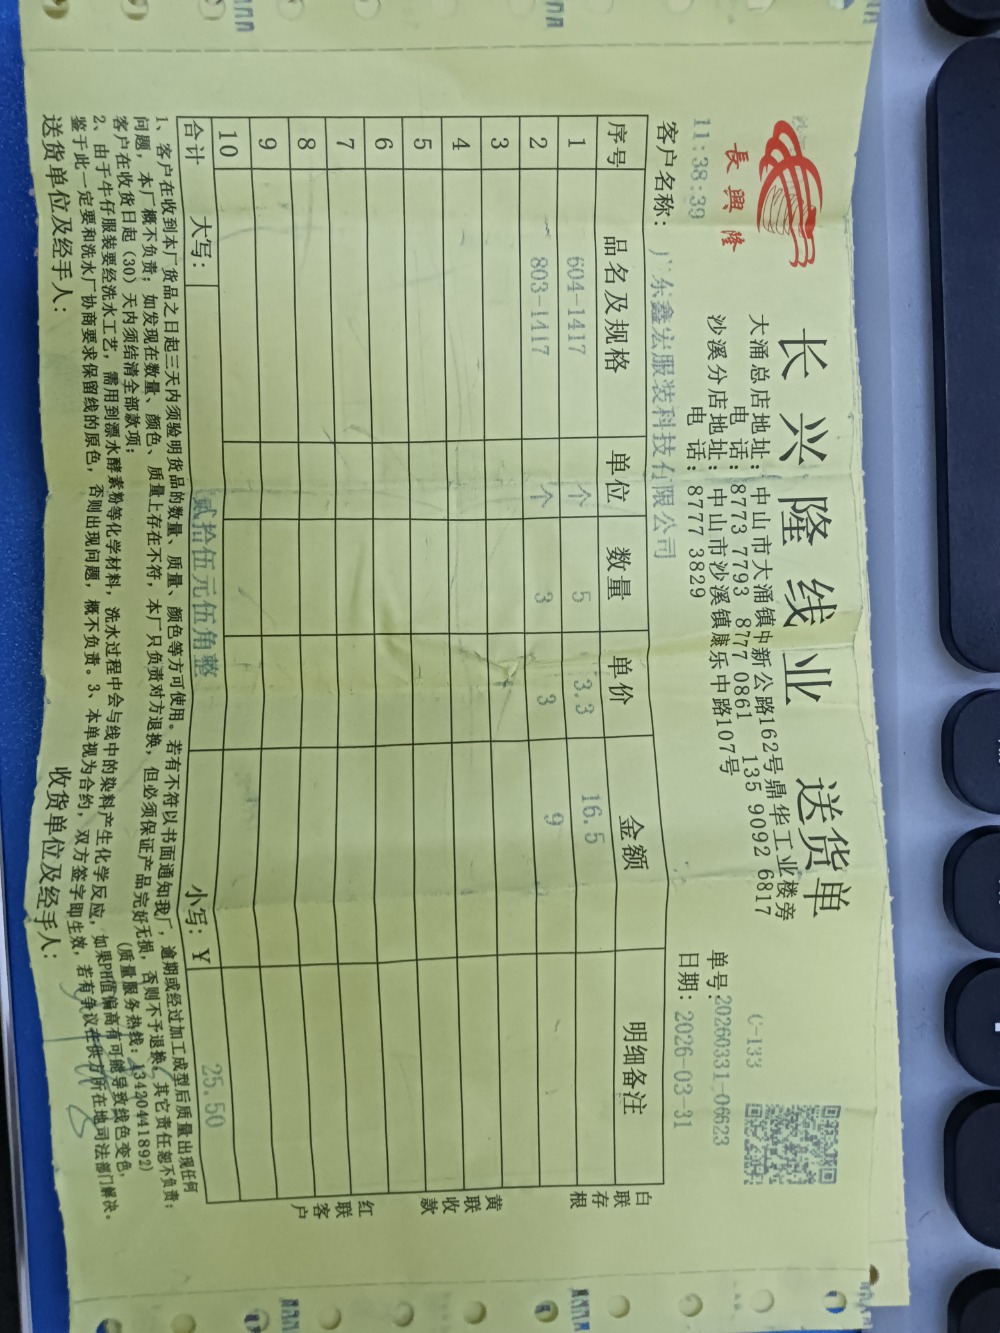 長興隆
长兴隆线业 送货单
C-133
大涌总店地址：中山市大涌镇中新公路162号鼎华工业楼旁
电 话：8773 7793 8777 0861 135 9092 6817
沙溪分店地址：中山市沙溪镇康乐中路107号
电 话：8777 3829
单号：20260331-06623
11:38:39
日期：2026-03-31
客户名称：广东鑫宏服装科技有限公司
序号 品名及规格 单位 数量 单价 金额 明细备注
1 604-1417 个 5 3.3 16.5
2 803-1417 个 3 3 9
3
4
5
6
7
8
9
10
合计 大写： 贰拾伍元伍角整 小写：￥ 25.50
白联存根
黄联收款
红联客户
1、客户在收到本厂货品之日起三天内须验明货品的数量、质量、颜色等方可使用。若有不符以书面通知我厂，逾期或经过加工成型后质量出现任何
问题，本厂概不负责；如发现在数量、颜色、质量上存在不符，本厂只负责对方退换，但必须保证产品完好无损，否则不予退换。其它责任恕不负责；
客户在收货日起（30）天内须结清全部款项； (质量服务热线：13420441892)
2、由于牛仔服装要经洗水工艺，需用到漂水酵素粉等化学材料，洗水过程中会与线中的染料产生化学反应，如果PH值偏高有可能导致线色变色，
鉴于此一定要和洗水厂协商要求保留线的原色，否则出现问题，概不负责。3、本单视为合约，双方签字即生效，若有争议在供方所在地司法部门解决。
送货单位及经手人： 收货单位及经手人：